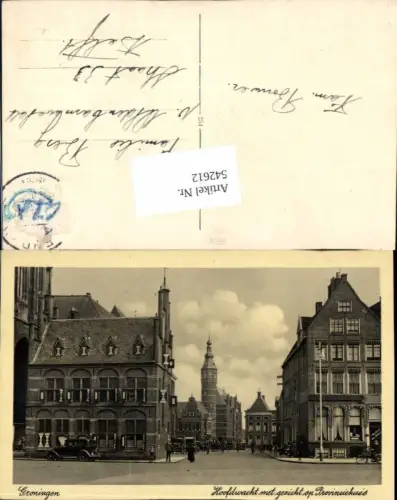 Familie Berg
v. Oldenbarneveldt
Straat 33
Delft.
Fam. Bouwer.
Artikel Nr.
542612
Groningen
Hoofdwacht met gezicht op Provinciehuis